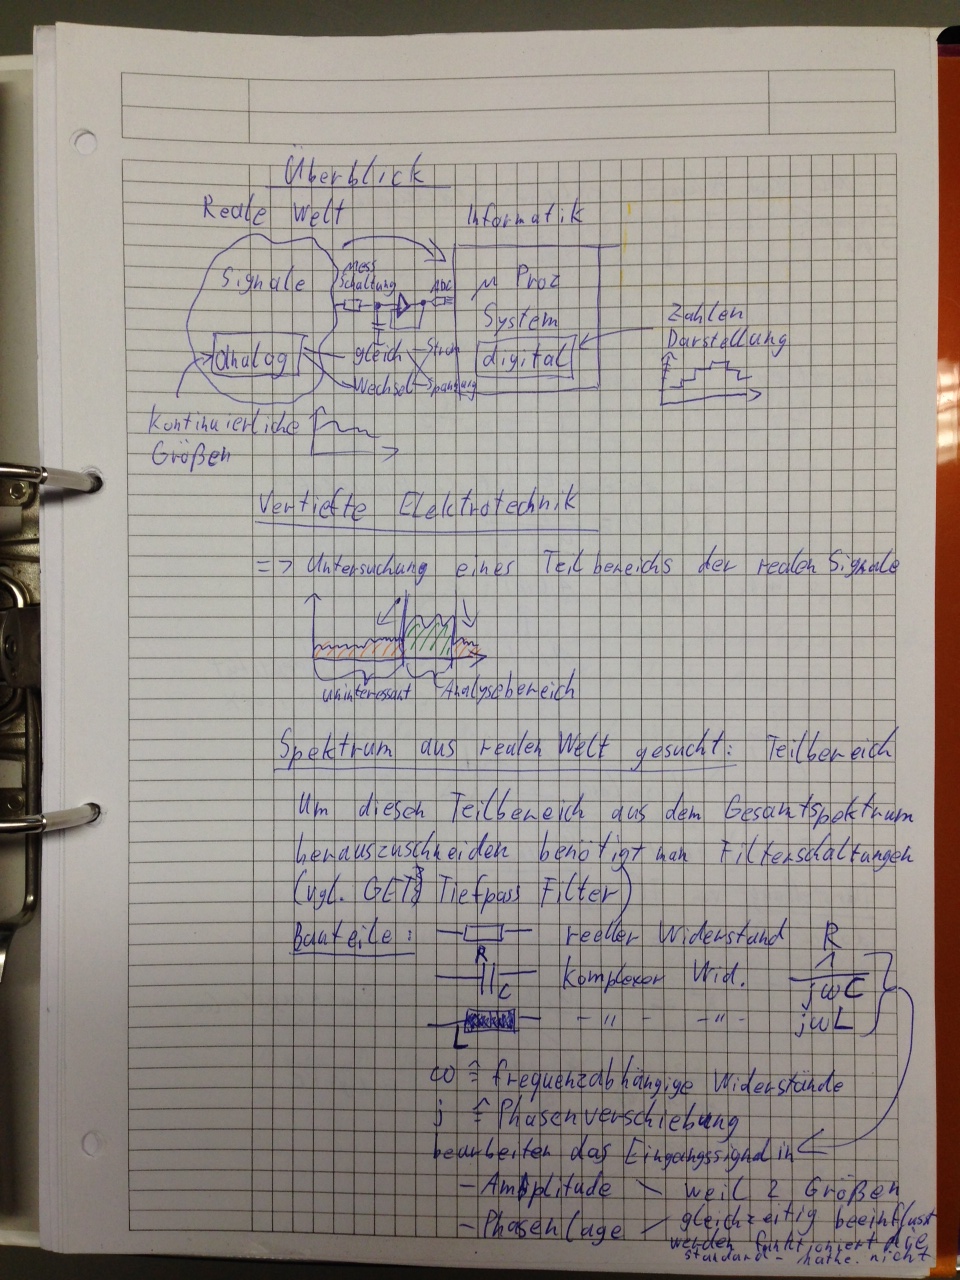 Überblick
Reale Welt
Informatik
Signale
Mess
Schaltung
ADC
µ Proz
System
analog
gleich
Strom
Wechsel
Spannung
digital
Zahlen
Darstellung
Kontinuierliche
Größen
Vertiefte Elektrotechnik
=> Untersuchung eines Teilbereichs der realen Signale
uninteressant
Analysebereich
Spektrum aus realen Welt gesucht: Teilbereich
Um diesen Teilbereich aus dem Gesamtspektrum
herauszuschneiden benötigt man Filterschaltungen
(vgl. GET Tiefpass Filter)
Bauteile: R reeller Widerstand R
C Komplexer Wid. 1/jωC
L - " - - " - jωL
ω ≙ frequenzabhängige Widerstände
j ≙ Phasenverschiebung
bearbeiten das Eingangssignal in
- Amplitude weil 2 Größen
- Phasenlage gleichzeitig beeinflusst
werden funktioniert die
standard - mathe. nicht